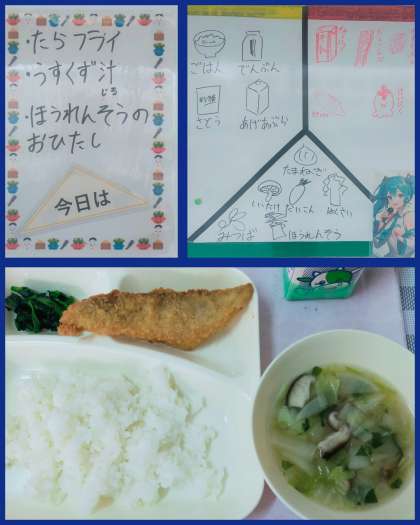 ・たらフライ
・うすくず汁
じる
・ほうれんそうの
おひたし
今日は
ごはん
でんぷん
さとう
あげあぶら
たまねぎ
しいたけ
だいこん
はくさい
みつば
ほうれんそう